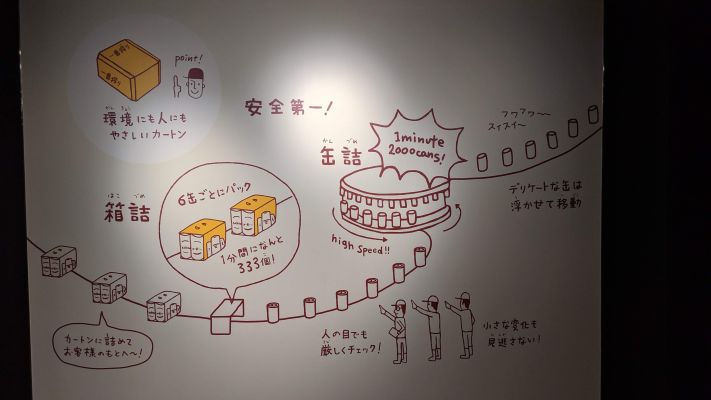 一番搾り
一番搾り
point!
かんきょう
環境にも人にも
やさしいカートン
安全第一!
かんづめ
缶詰
1minute
2000cans!
フワフワ〜
スイスイ〜
デリケートな缶は
浮かせて移動
high speed!!
はこづめ
箱詰
6缶ごとにパック
1分間になんと
333個!
カートンに詰めて
お客様のもとへ〜!
人の目でも
厳しくチェック!
小さな変化も
見逃さない!